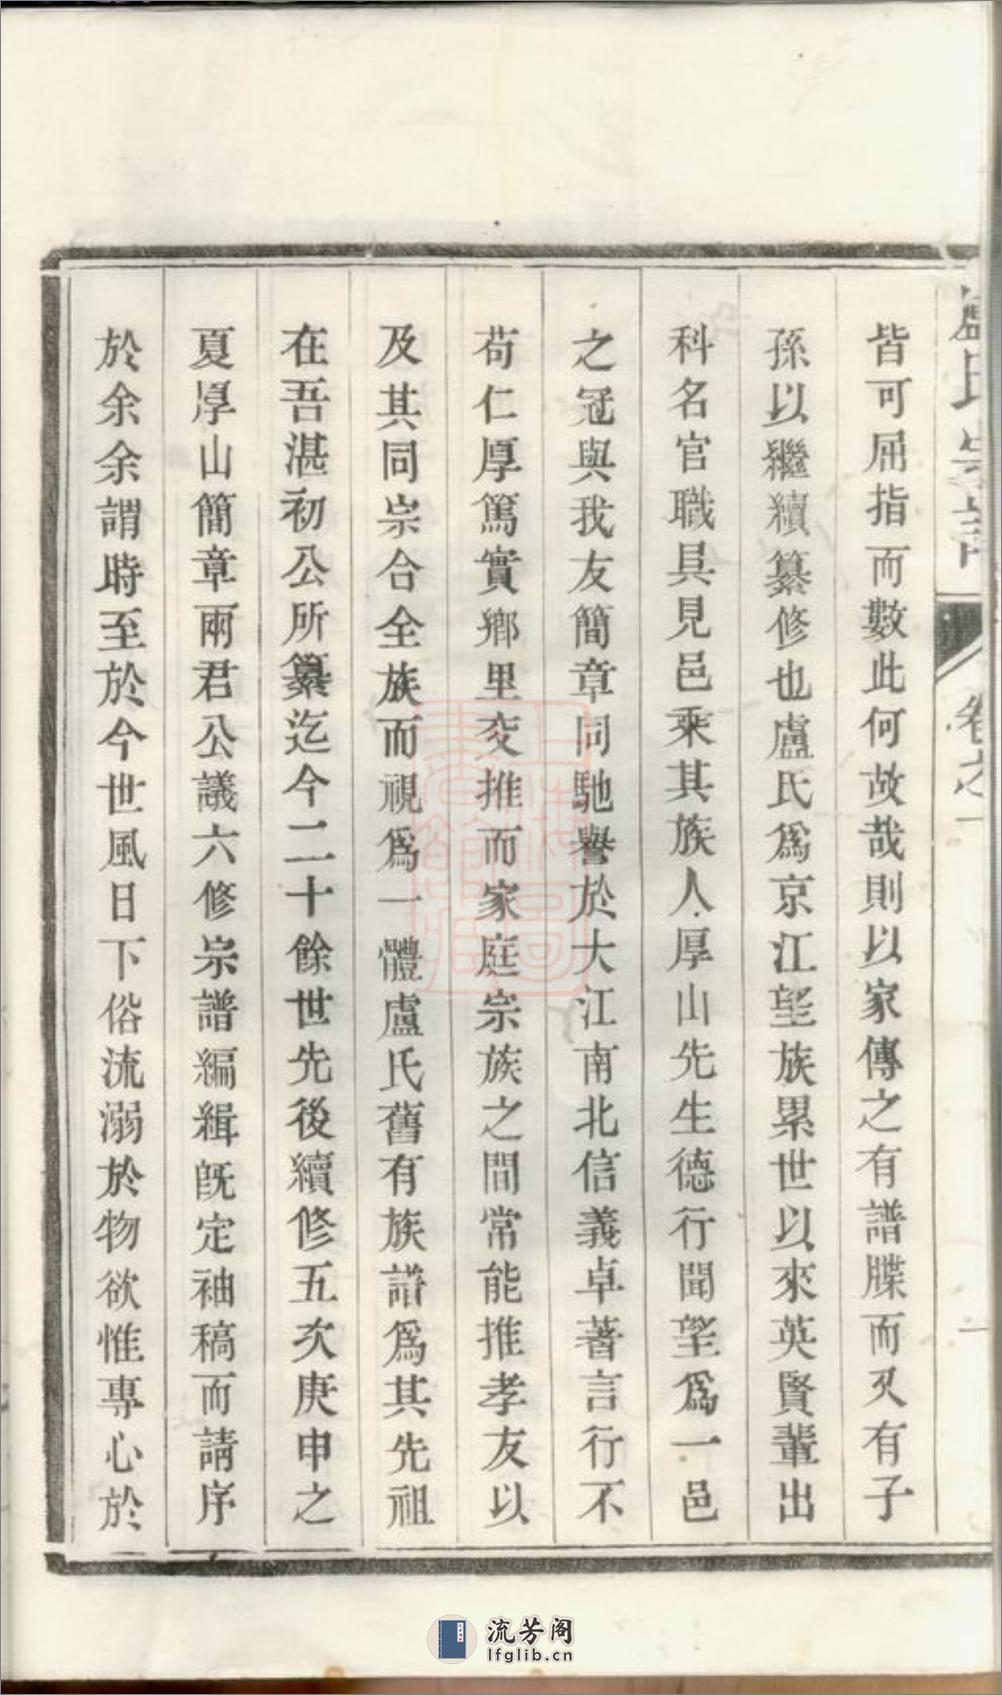 盧氏宗譜
卷之一
一
皆可屈指而數此何故哉則以家傳之有譜牒而又有子
孫以繼續纂修也盧氏爲京江望族累世以來英賢輩出
科名官職具見邑乘其族人厚山先生德行聞望爲一邑
之冠與我友簡章同馳譽於大江南北信義卓著言行不
苟仁厚篤實鄉里交推而家庭宗族之間常能推孝友以
及其同宗合全族而視爲一體盧氏舊有族譜爲其先祖
在吾湛初公所纂迄今二十餘世先後續修五次庚申之
夏厚山簡章兩君公議六修宗譜編緝旣定袖稿而請序
於余余謂時至於今世風日下俗流溺於物欲惟專心於
上海圖書館藏
流芳阁
lfglib.cn